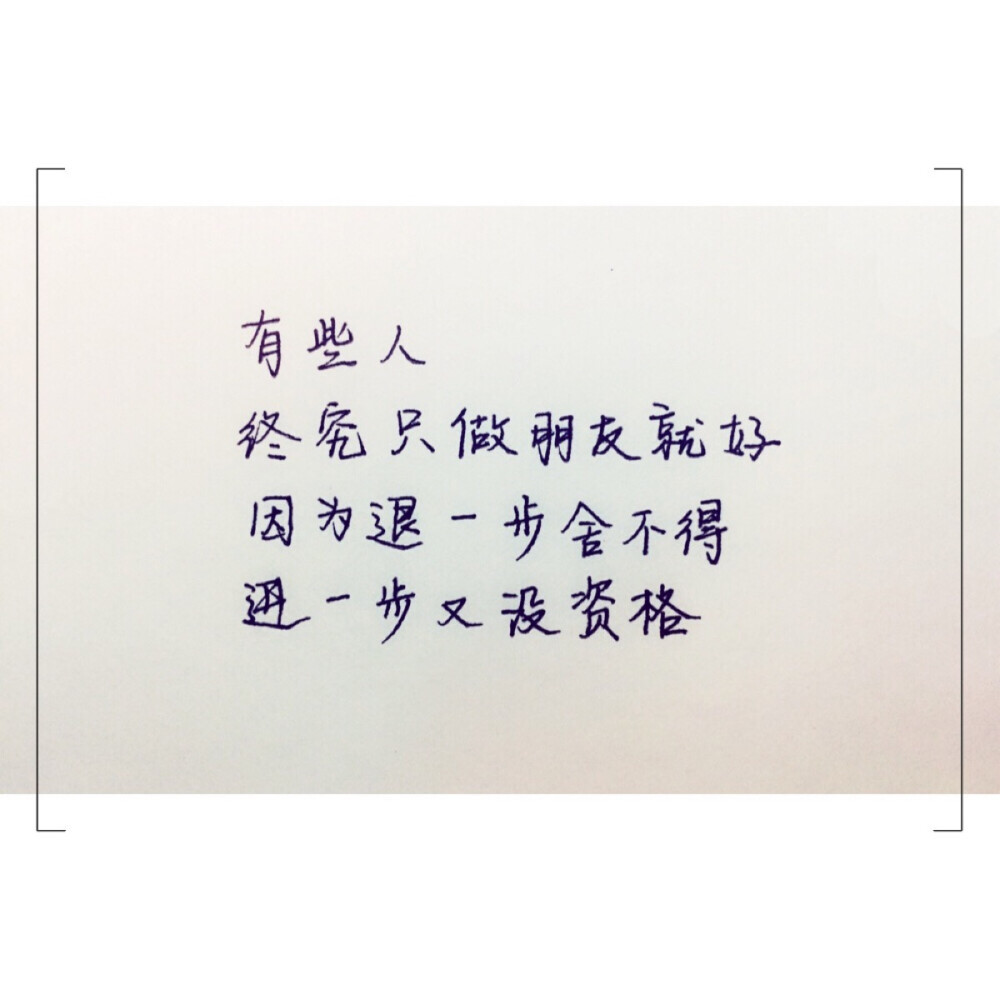 有些人
终究只做朋友就好
因为退一步舍不得
进一步又没资格